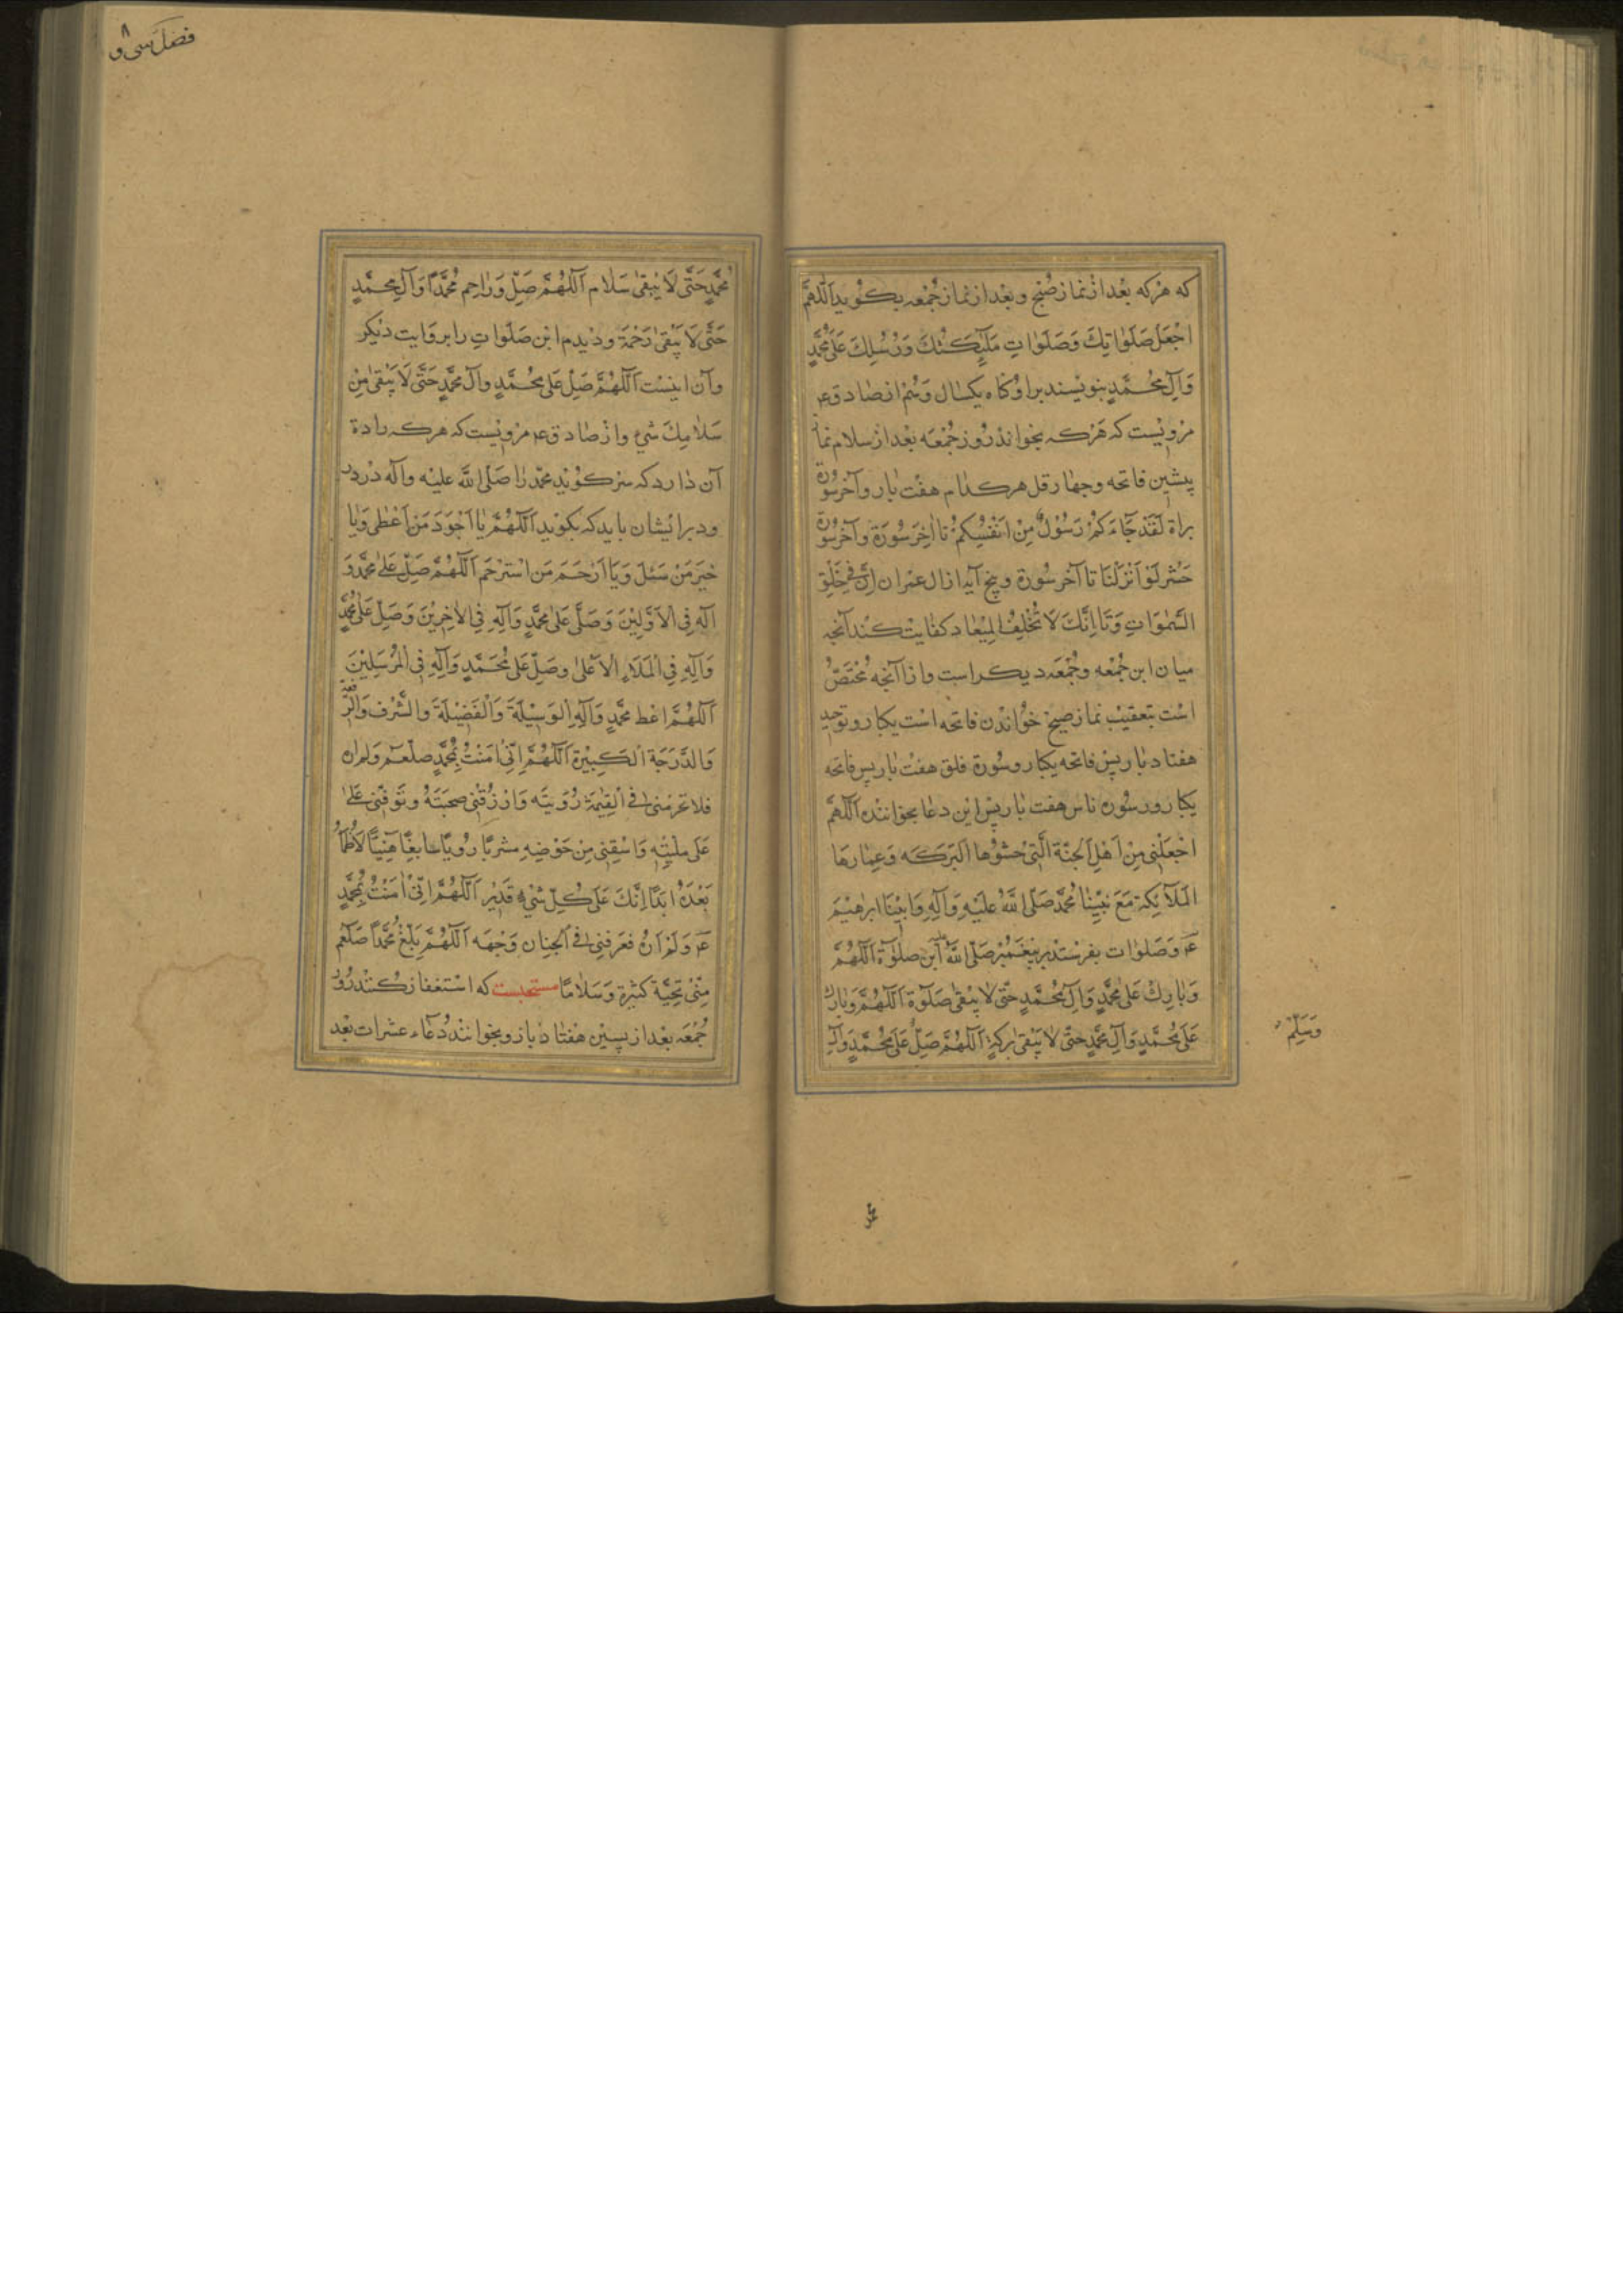 که هرکه بعد از نماز صبح و بعد از نماز جمعه بکوید اَللّٰهُمَّ
اجْعَلْ صَلَوٰاتِكَ وَصَلَوٰاتِ مَلٰٓئِكَتِكَ وَرُسُلِكَ عَلٰی مُحَمَّدٍ
وَآلِ مُحَمَّدٍ ننویسند بر او کناه یکسال وَهُم از صادق ع
مرویست که هرکه بخواند روز جمعه بعد از سلام نماز
پیشین فاتحه و چهار قل هر کدام هفت بار و آخر سورة
براة لَقَدْ جَآءَكُمْ رَسُوْلٌ مِنْ اَنْفُسِكُمْ تا اٰخِر سُورَة وآخر سورة
حشر لَوْ اَنْزَلْنَا تا آخر سورة و پنج آیه از ال عمران اِنَّ فِي خَلْقِ
السَّمٰوَاتِ وَتَا اِنَّكَ لَا تُخْلِفُ الْمِيْعَاد کفایت کند آنچه
میان این جمعه و جمعه دیکر است و از آنچه مُخْتَصّ
است بتعقیب نماز صبح خواندن فاتحه است یکبار و توحید
هفتاد بار پس فاتحه یکبار و سورة فلق هفت بار پس فاتحه
یکبار و سوره ناس هفت بار پس این دعا بخوانند اَللّٰهُمَّ
اجْعَلْنِي مِنْ اَهْلِ الْجَنَّةِ الَّتِي حَشْوُها الْبَرَكَه وَعمارهَا
الْمَلَآئِكَة مَعَ نَبِيِّنَا مُحَمَّد صَلَّى اللّٰهُ عَلَيْهِ وَآلِهِ وَاَبِيْنَا ابراهیم
ع وَصَلَوات بفرستند بر پیغمبر صَلَّى اللّٰهُ این صلوٰة اَللّٰهُمَّ
وَبَارِكْ عَلٰى مُحَمَّدٍ وَآلِ مُحَمَّدٍ حَتّٰى لَا يَبْقٰى صَلَوٰة اَللّٰهُمَّ وَبَارِك
عَلٰى مُحَمَّدٍ وَآلِ مُحَمَّدٍ حَتّٰى لَا يَبْقٰى بَرَكَة اَللّٰهُمَّ صَلِّ عَلٰى مُحَمَّدٍ وَآلِ
وَسَلِّمْ
مُحَمَّدٍ حَتّٰى لَا يَبْقٰى سَلَام اَللّٰهُمَّ صَلِّ وَرَاحِم مُحَمَّدًا وَآلِ مُحَمَّدٍ
حَتّٰى لَا يَبْقٰى رَحْمَة ودیدم این صَلَوات را بروایت دیکر
وآن اینست اَللّٰهُمَّ صَلِّ عَلٰى مُحَمَّدٍ وآل مُحَمَّدٍ حَتّٰى لَا يَبْقٰى مِنْ
سَلَامِكَ شَيْء و از صادق ع مرویست که هرکه اراده
آن دارد که مسرور کند محمد را صَلَّى اللّٰه عليه وآله درود
ودر بر ایشان باید که بکوید اَللّٰهُمَّ يَا اَجْوَدَ مَنْ اَعْطٰى وَيَا
خَيْرَ مَنْ سُئِلَ وَيَا اَرْحَمَ مَنِ اسْتُرْحِمَ اَللّٰهُمَّ صَلِّ عَلٰى مُحَمَّد وَ
آلِهِ فِي الْاَوَّلِيْنَ وَصَلِّ عَلٰى مُحَمَّدٍ وَآلِهِ فِي الْاٰخِرِيْنَ وَصَلِّ عَلٰى مُحَمَّدٍ
وَآلِهِ فِي الْمَلَاءِ الْاَعْلٰى وصَلِّ عَلٰى مُحَمَّدٍ وَآلِهِ فِي الْمُرْسَلِيْنَ
اَللّٰهُمَّ اعْطِ مُحَمَّدٍ وَآلِهِ الْوَسِيْلَةَ وَالْفَضِيْلَةَ والشَّرَف وَالرِّفْعَة
وَالدَّرَجَةَ الْكَبِيْرَة اَللّٰهُمَّ اِنِّي اٰمَنْتُ بِمُحَمَّدٍ صلعم وَلم اره
فلا تحرمنی فی الْقِيٰمَة رُؤيَتَه وَارْزُقْنِي صُحْبَتَهُ وتوفّنی علی
عَلٰى مِلَّتِه وَاسْقِنِي مِنْ حَوْضِهِ مشربًا رویًّا سابغًا هَنِيًّا لَا اَظْمَأُ
بَعْدَهُ اَبَدًا اِنَّكَ عَلٰى كُلِّ شَيْءٍ قَدِيْر اَللّٰهُمَّ اِنِّي اٰمَنْتُ بِمُحَمَّدٍ
ع وَلَمْ اَرَهُ فعَرفنی فِي الْجِنَان وَجْهَه اَللّٰهُمَّ بَلِّغْ مُحَمَّداً صلعم
مِنِّي تَحِيَّة كَثِيْرة وَسَلَامًا مستحبست که استغفار کنند روز
جُمُعَه بعد از پسین هفتاد بار و بخوانند دُعَاء عشرات بعد